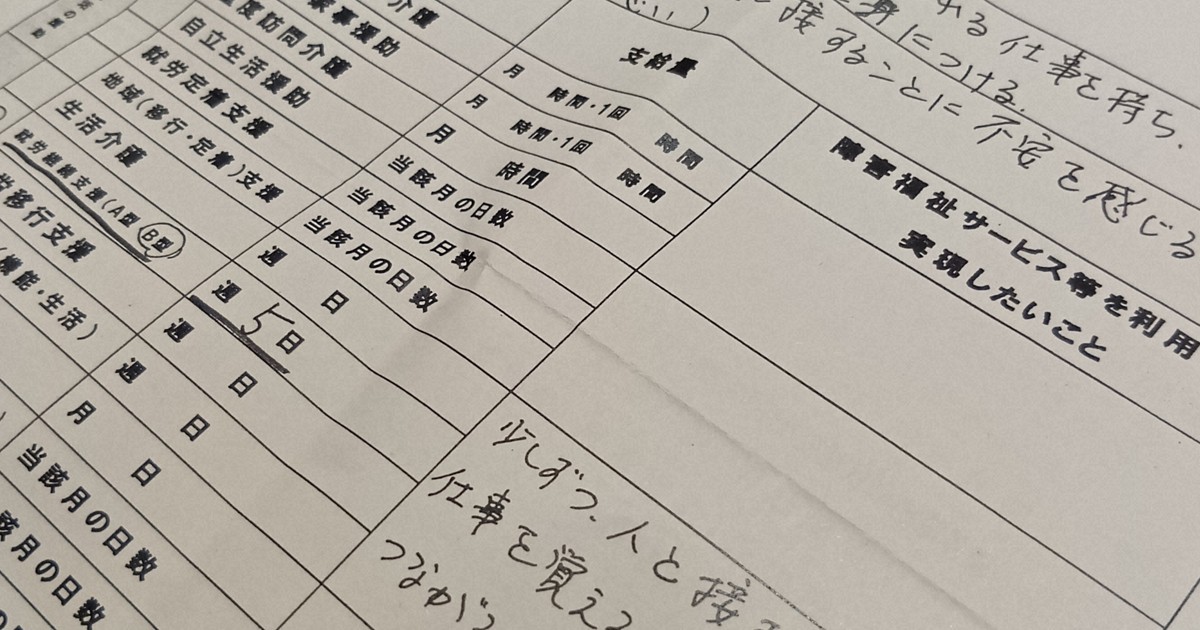 れる仕事を持ち、
身につける。
接することに不安を感じる
支給量
障害福祉サービス等を利用
実現したいこと
介護
家事援助
月 時間・1回 時間
度訪問介護
月 時間・1回 時間
自立生活援助
月 時間
就労定着支援
当該月の日数
地域(移行・定着)支援
当該月の日数
生活介護
当該月の日数
就労継続支援(A型 B型)
週 日
移行支援
週 5 日
機能・生活)
週 日
週 日
月 日
当該月の日数
該月の日数
少しずつ、人と接
仕事を覚える
つながっ